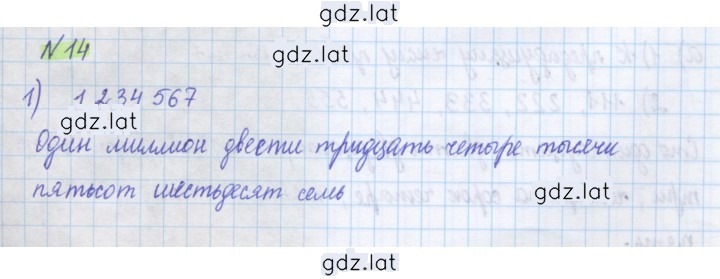 gdz.lat
№14
gdz.lat
1) 1 234 567
gdz.lat
Один миллион двести тридцать четыре тысячи
пятьсот шестьдесят семь
gdz.lat
gdz.lat